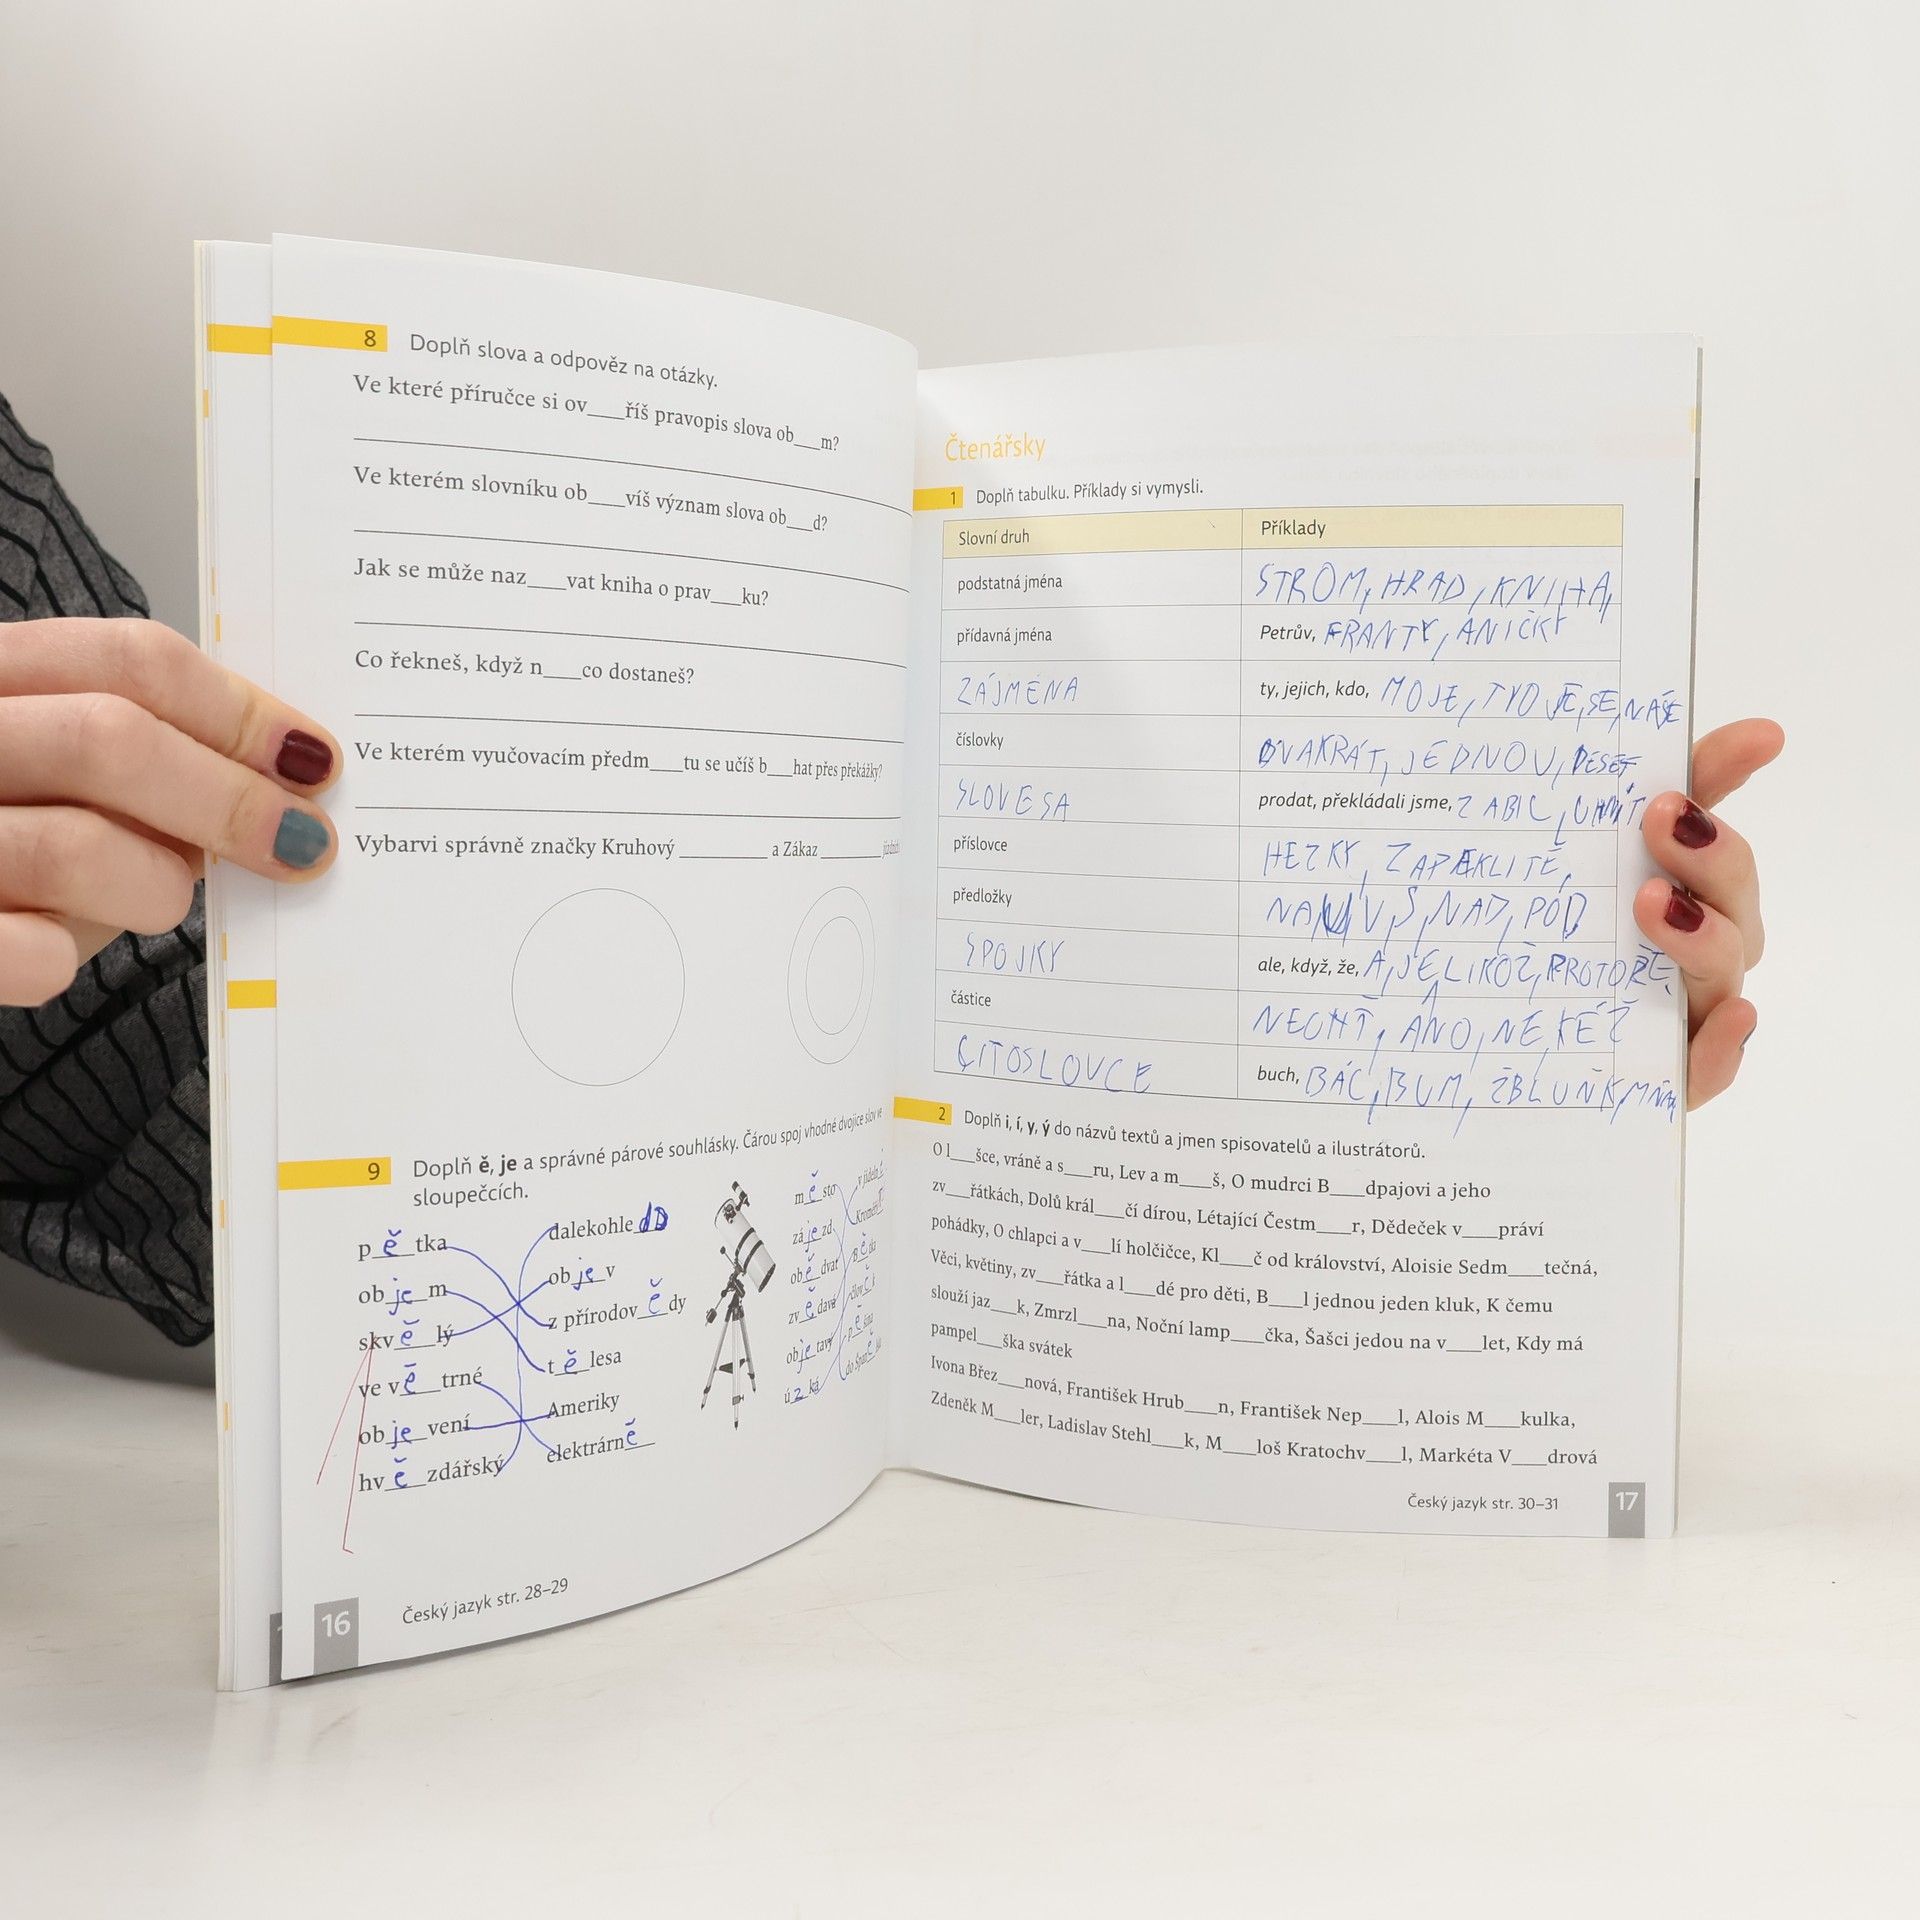 8 Doplň slova a odpověz na otázky.
Ve které příručce si ov___říš pravopis slova ob___m?
Ve kterém slovníku ob___víš význam slova ob___d?
Jak se může naz___vat kniha o prav___ku?
Co řekneš, když n___co dostaneš?
Ve kterém vyučovacím předm___tu se učíš b___hat přes překážky?
Vybarvi správně značky Kruhový ________ a Zákaz ________
9 Doplň ě, je a správné párové souhlásky. Čárou spoj vhodné dvojice slov ve
sloupečcích.
pětka
objem
skvělý
ve větrné
objevení
hvězdářský
dalekohled
objev
z přírodovědy
tělesa
Ameriky
elektrárně
město
zájezd
obědvat
zvědavý
objetavý
úzká
v jídelně
16 Český jazyk str. 28–29
Čtenářsky
1 Doplň tabulku. Příklady si vymysli.
Slovní druh Příklady
podstatná jména STROM, HRAD, KNIHA,
přídavná jména Petrův, FRANTY, ANIČKY
ZÁJMENA ty, jejich, kdo, MOJE, TVOJE, SE, NAŠE
číslovky DVAKRÁT, JEDNOU, DESET
SLOVESA prodat, překládali jsme, ZABIL,
příslovce HEZKY, ZAPEKLITĚ,
předložky NA, V, S, NAD, POD
SPOJKY ale, když, že, A, JELIKOŽ, PROTOŽE,
částice NECHŤ, ANO, NE, KÉŽ
CITOSLOVCE buch, BÁC, BUM, ŽBLUŇK, MŇAU
2 Doplň i, í, y, ý do názvů textů a jmen spisovatelů a ilustrátorů.
O l___šce, vráně a s___ru, Lev a m___š, O mudrci B___dpajovi a jeho
zv___řátkách, Dolů král___čí dírou, Létající Čestm___r, Dědeček v___práví
pohádky, O chlapci a v___lí holčičce, Kl___č od království, Aloisie Sedm___tečná,
Věci, květiny, zv___řátka a l___dé pro děti, B___l jednou jeden kluk, K čemu
slouží jaz___k, Zmrzl___na, Noční lamp___čka, Šašci jedou na v___let, Kdy má
pampel___ška svátek
Ivona Břez___nová, František Hrub___n, František Nep___l, Alois M___kulka,
Zdeněk M___ler, Ladislav Stehl___k, M___loš Kratochv___l, Markéta V___drová
Český jazyk str. 30–31 17